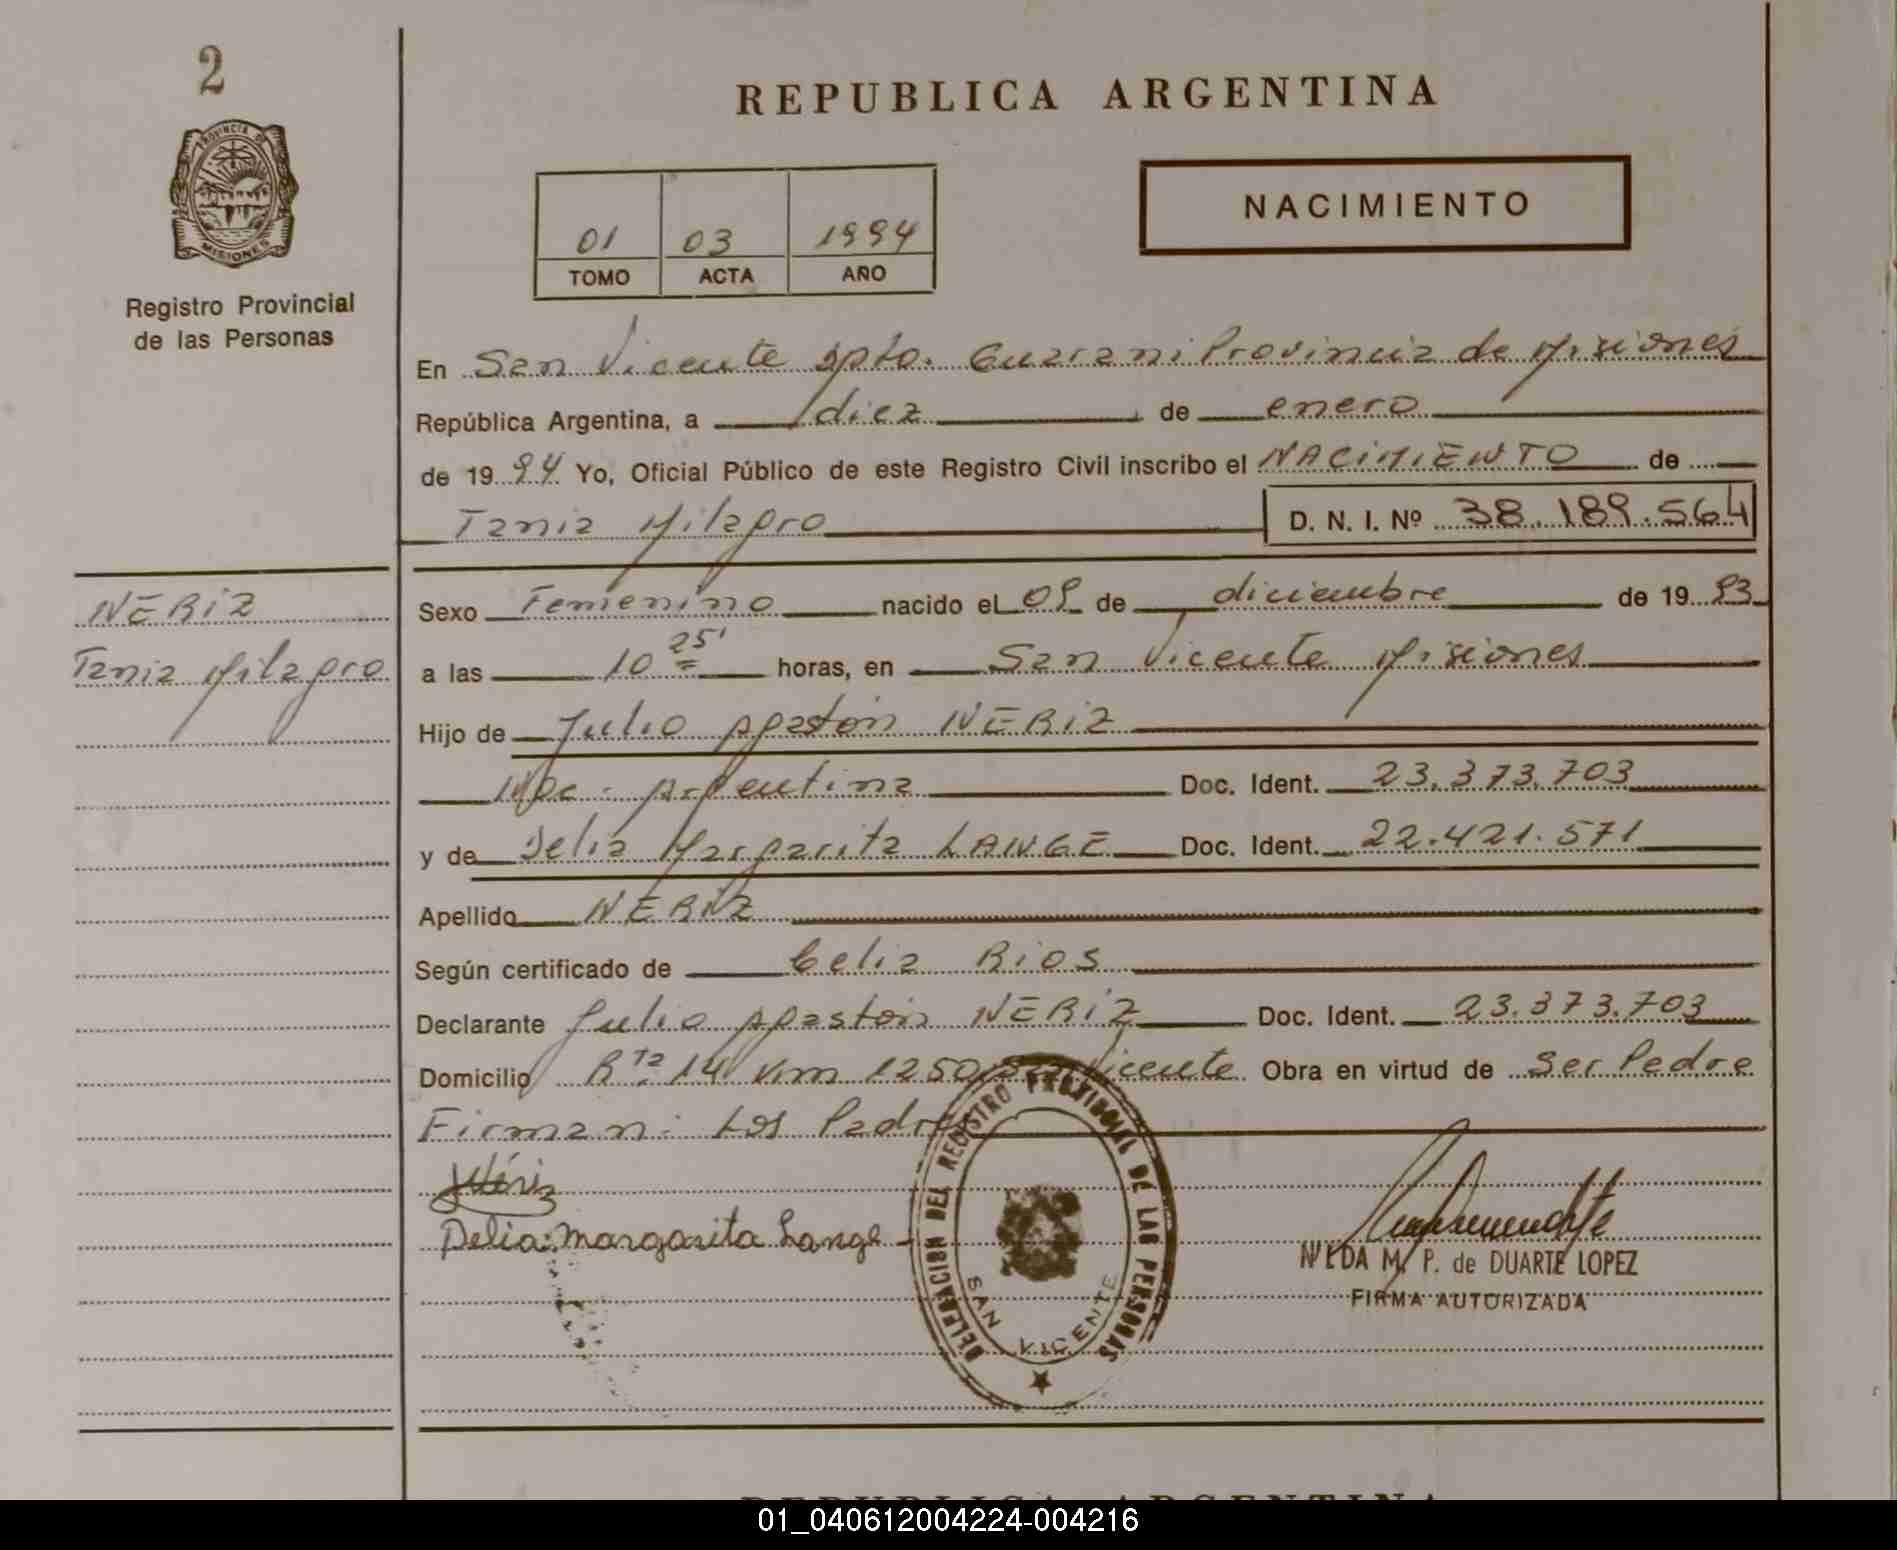 2
PROVINCIA DE
MISIONES
Registro Provincial
de las Personas
REPUBLICA ARGENTINA
01 03 1994
TOMO ACTA AÑO
NACIMIENTO
En San Vicente Dpto. Guarani Provincia de Misiones
República Argentina, a diez de enero
de 1994 Yo, Oficial Público de este Registro Civil inscribo el NACIMIENTO de
Tania Milagro D. N. I. Nº 38.189.564
NERIZ
Tania Milagro
Sexo Femenino nacido el 09 de diciembre de 1993
a las 10 25' horas, en San Vicente Misiones
Hijo de Julio Agastón NERIZ
Nac. Argentina Doc. Ident. 23.373.703
y de Delia Margarita LANGE Doc. Ident. 22.421.571
Apellido NERIZ
Según certificado de Celia Rios
Declarante Julio Agastón NERIZ Doc. Ident. 23.373.703
Domicilio Rta. 14 Km 1250 San Vicente Obra en virtud de Ser Padre
Firman: Los Padres
JNériz
Delia Margarita Lange
DELEGACION DEL REGISTRO PROVINCIAL DE LAS PERSONAS
SAN VICENTE
NILDA M. P. de DUARTE LOPEZ
FIRMA AUTORIZADA
REPUBLICA ARGENTINA
01_040612004224-004216